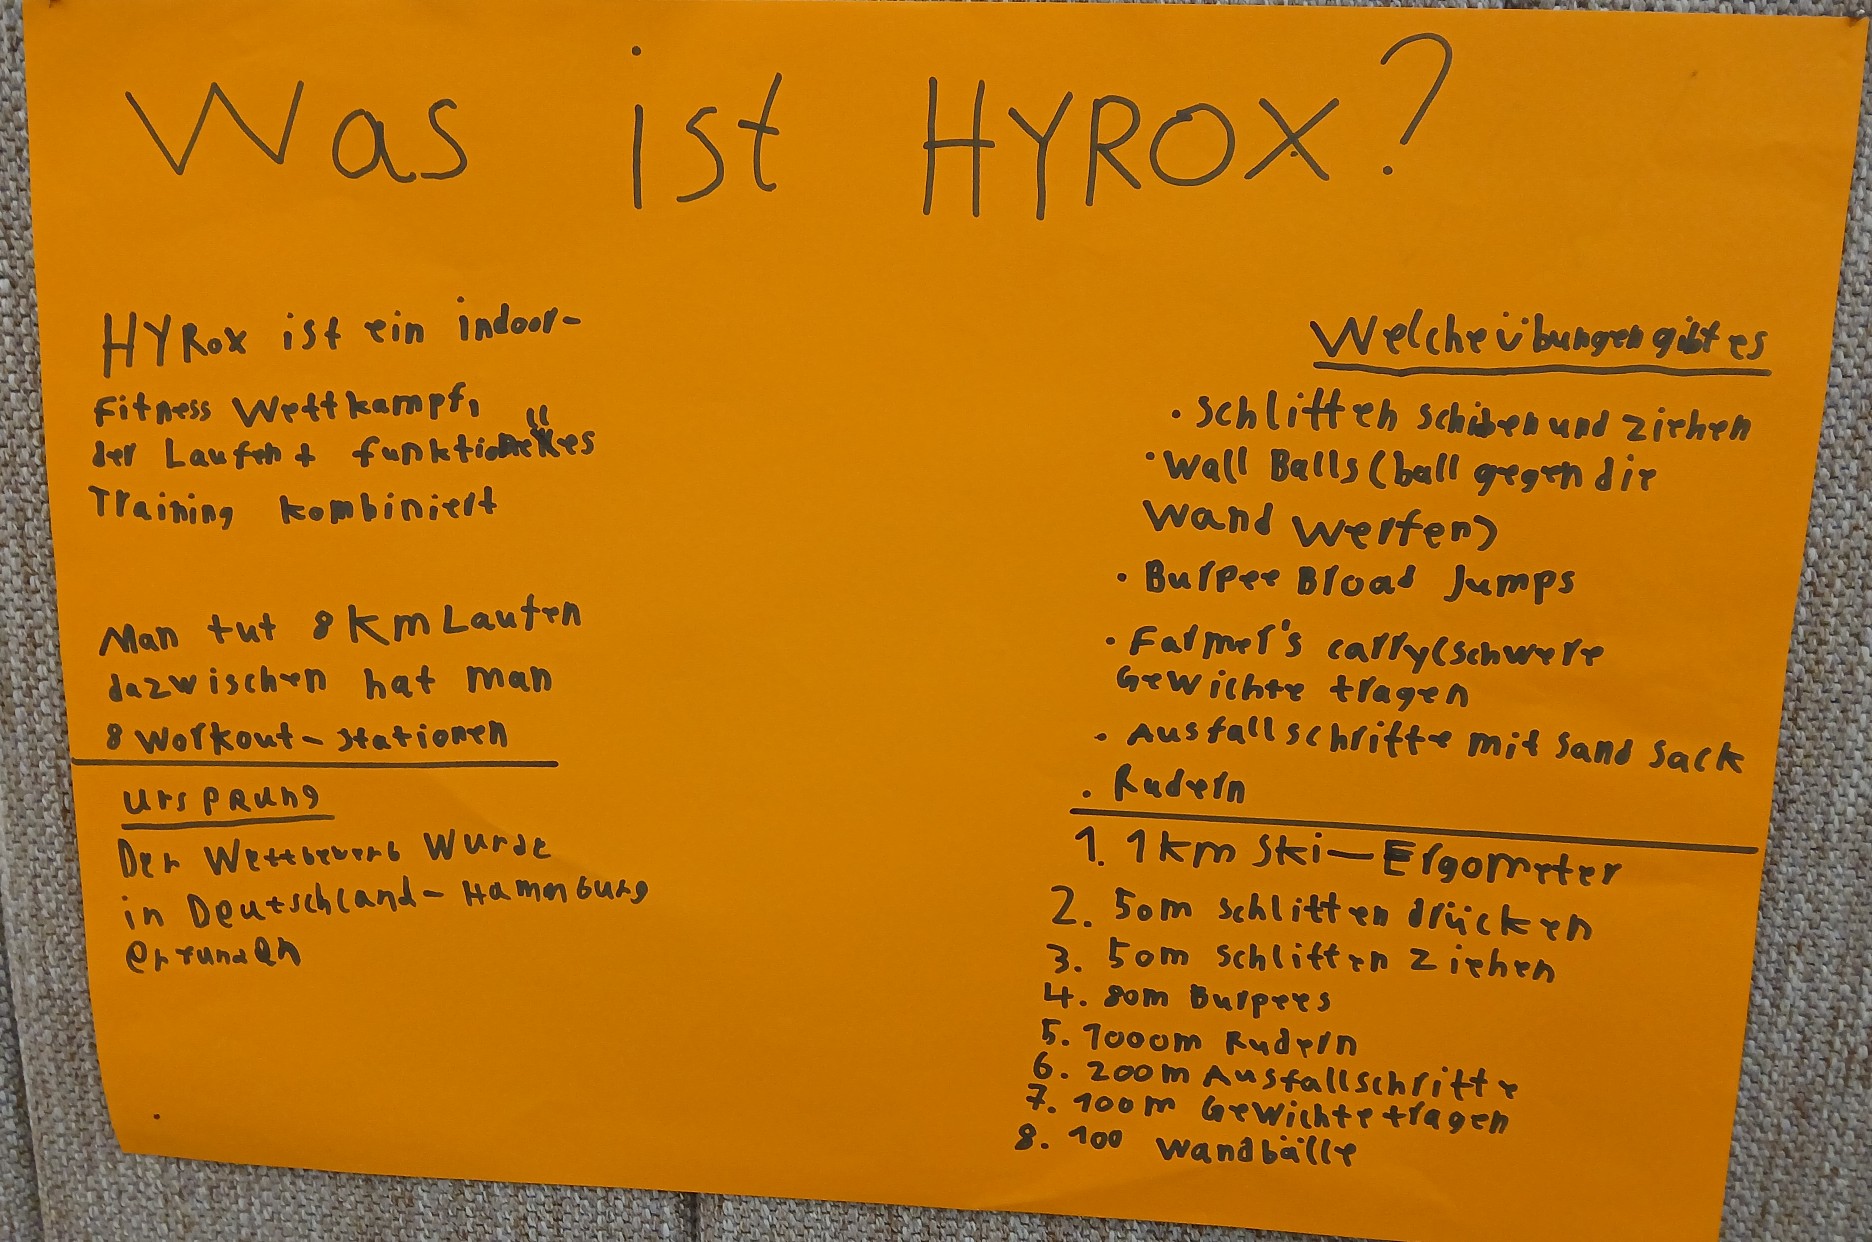 Was ist HYROX?
HYRox ist ein indoor-
Fitness Wettkampf,
der Laufen + funktionelles
Training kombiniert
Man tut 8 km Laufen
dazwischen hat man
8 Workout-Stationen
Ursprung
Der Wettbewerb wurde
in Deutschland-Hammburg
erfunden
Welche übungen gibt es
• Schlitten schiben und ziehen
• Wall Balls (ball gegen die
Wand werfen)
• Burpee Broad Jumps
• Farmer's carry (schwere
Gewichte tragen
• Ausfallschritte mit Sand Sack
• Rudern
1. 1 km Ski-Ergometer
2. 50m schlitten drücken
3. 50m schlitten ziehen
4. 80m Burpees
5. 1000m Rudern
6. 200m Ausfallschritte
7. 100m Gewichte tragen
8. 100 Wandbälle